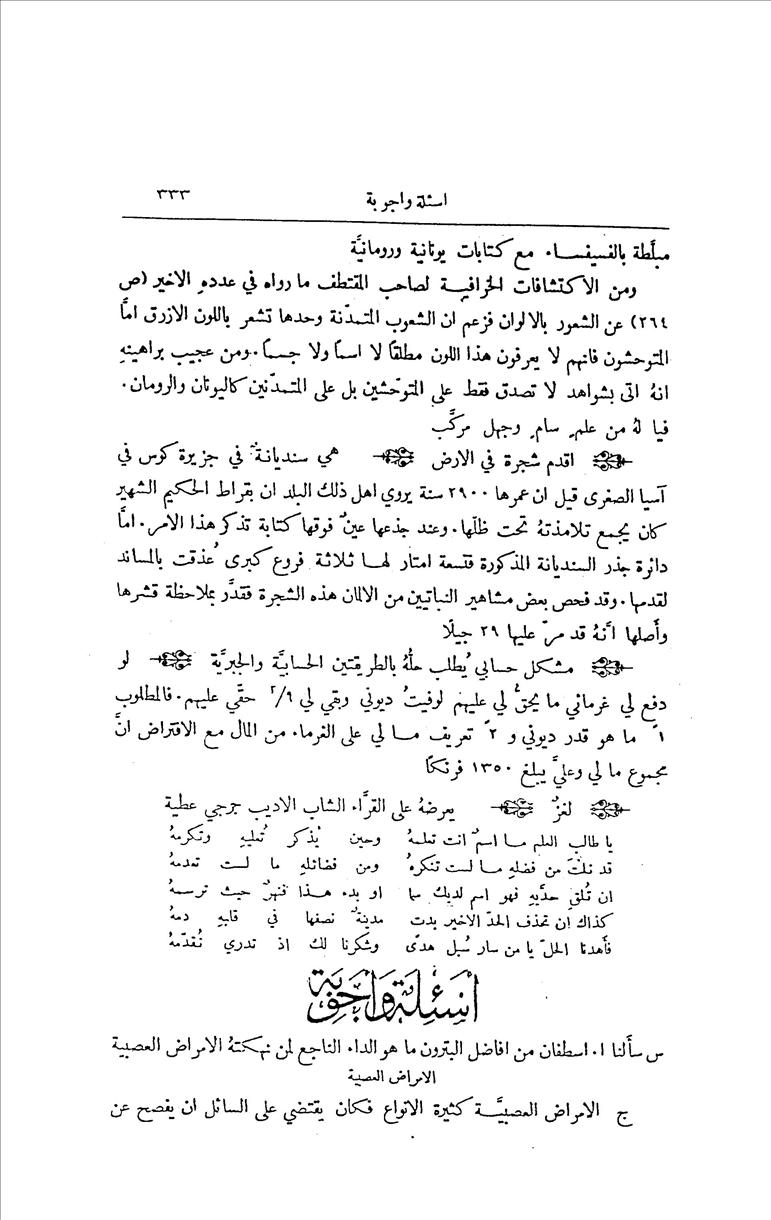 اسئلة واجوبة ٣٣٣
مبلَّطة بالفسيفساء مع كتابات يونانية ورومانيَّة
ومن الاكتشافات الخرافية لصاحب المقتطف ما رواه في عددهِ الاخير (ص
٢٦٤) عن الشعور بالالوان فزعم ان الشعوب المتمدّنة وحدها تشعر باللون الازرق امَّا
المتوحشون فانهم لا يعرفون هذا اللون مطلقًا لا اسمًا ولا جسمًا. ومن عجيب براهينهِ
انهُ اتى بشواهد لا تصدق فقط على المتوحّشين بل على المتمدّنين كاليونان والرومان.
فيا لهُ من علمٍ سامٍ وجهل مركَّب
اقدم شجرة في الارض هي سنديانةٌ في جزيرة كوس في
آسيا الصغرى قيل ان عمرها ٢٩٠٠ سنة يروي اهل ذلك البلد ان بقراط الحكيم الشهير
كان يجمع تلامذتهُ تحت ظلّها. وعند جذعها عينٌ فوقها كتابة تذكر هذا الامر. امَّا
دائرة جذر السنديانة المذكورة فتسعة امتار لها ثلاثة فروع كبرى عُذقت بالمساند
لقدمها. وقد فحص بعض مشاهير النباتيين من الالمان هذه الشجرة فقدَّر بملاحظة قشرها
وأَصلها انَّهُ قد مرّ عليها ٢٩ جيلًا
مشكل حسابي يُطلب حلُّهُ بالطريقتين الحسابيَّة والجبريَّة لو
دفع لي غرمائي ما يحقُّ لي عليهم لوفيتُ ديوني وبقي لي ٢/٩ حقّي عليهم. فالمطلوب
١ً ما هو قدر ديوني و ٢ً تعريف ما لي على الغرماء من المال مع الاقتراض انَّ
مجموع ما لي وعليَّ يبلغ ١٣٥٠ فرنكًا
لغزٌ يعرضهُ على القرَّاء الشاب الاديب جرجي عطية
يا طالب العلم ما اسمٌ انت تعلمهُ وحين يُذكر تُعليهِ وتكرمهُ
قد نلتَ من فضلهِ ما لست تنكرهُ ومن فضائلهِ ما لست تعدمهُ
ان تُلقِ حدَّيهِ فهو اسم لديك سما او بدء هذا فنهرٌ حيث ترسمهُ
كذاك ان تحذف الحدّ الاخير بدت مدينةٌ نصفها في قلبهِ دمهُ
فأَهدنا الحلّ يا من سار سُبل هدًى وشكرنا لك اذ تدري نُقدّمهُ
اسئلة واجوبة
س سألنا ا. اسطفان من افاضل البترون ما هو الداء الناجع لمن نهكتهُ الامراض العصبية
الامراض العصبية
ج الامراض العصبيَّة كثيرة الانواع فكان يقتضي على السائل ان يفصح عن